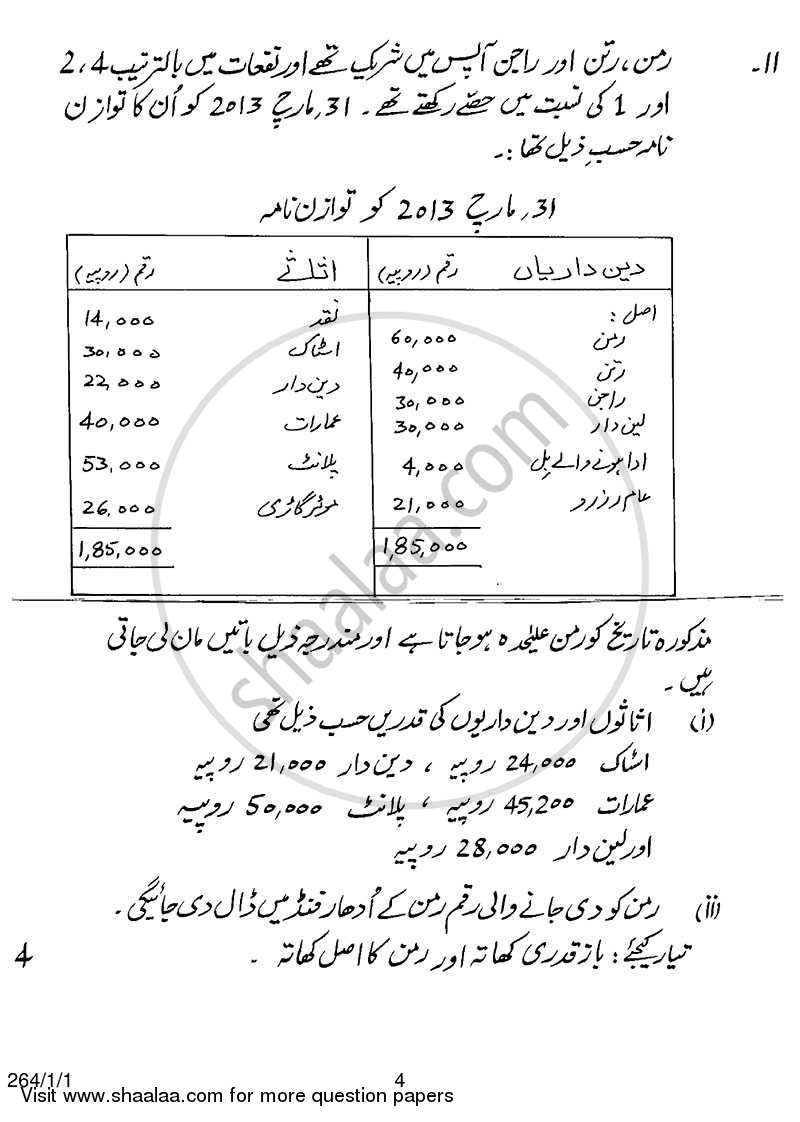 11۔ رمن، رتن اور راجن آپس میں شریک تھے اور نفعات میں بالترتیب 4، 2
اور 1 کی نسبت میں حصّے رکھتے تھے۔ 31؍ مارچ 2013 کو اُن کا توازن
نامہ حسبِ ذیل تھا :۔
31؍ مارچ 2013 کو توازن نامہ
دین داریاں رقم (روپیہ) اثاثے رقم (روپیہ)
اصل : نقد 14,000
رمن 60,000 اسٹاک 30,000
رتن 40,000 دین دار 22,000
راجن 30,000
لین دار 30,000 عمارات 40,000
ادا ہونے والے بِل 4,000 پلانٹ 53,000
عام رزرو 21,000 موٹر گاڑی 26,000
1,85,000 1,85,000
مذکورہ تاریخ کو رمن علیٰحدہ ہو جاتا ہے اور مندرجہ ذیل باتیں مان لی جاتی
ہیں۔
(i) اثاثوں اور دین داریوں کی قدریں حسب ذیل تھی
اسٹاک 24,000 روپیہ ، دین دار 21,000 روپیہ
عمارات 45,200 روپیہ ، پلانٹ 50,000 روپیہ
اور لین دار 28,000 روپیہ
(ii) رمن کو دی جانے والی رقم رمن کے اُدھار فنڈ میں ڈال دی جائیگی۔
تیار کیجئے : باز قدری کھاتہ اور رمن کا اصل کھاتہ ۔ 4
shaalaa.com
264/1/1 4
Visit www.shaalaa.com for more question papers